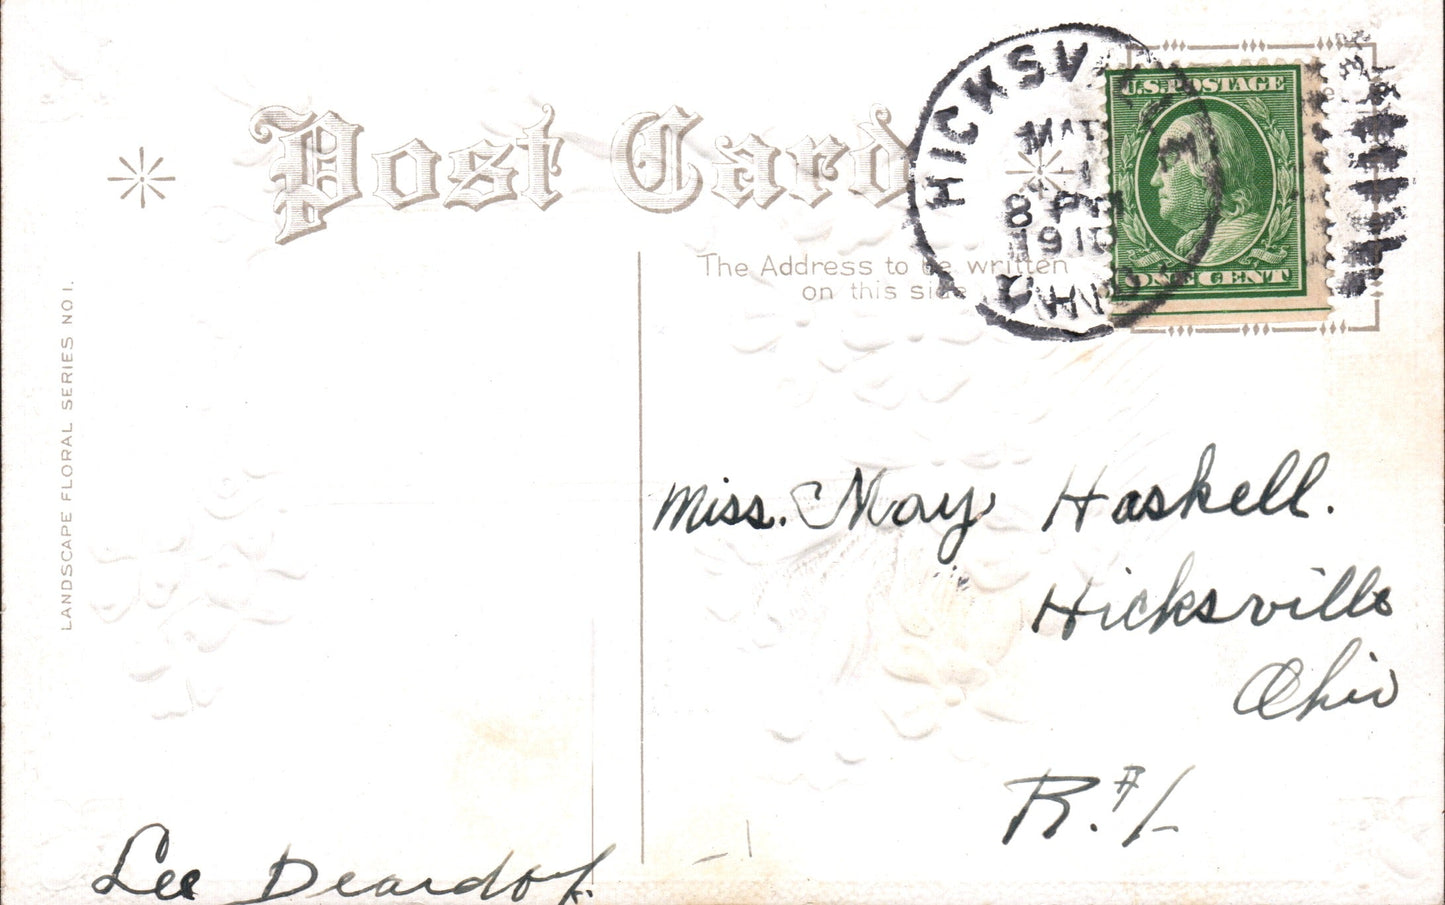 Post Card
HICKSVILLE
MAR
1
8 PM
1910
OHIO
U.S. POSTAGE
ONE CENT
The Address to be written
on this side
LANDSCAPE FLORAL SERIES NO 1.
Miss. May Haskell.
Hicksville
Ohio
R. #1
Lee Deardof.